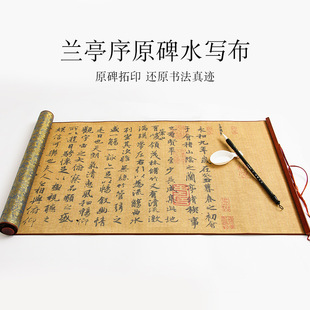 兰亭序原碑水写布
原碑拓印 还原书法真迹
永和九年歲在癸丑暮春之初會
于會稽山陰之蘭亭脩稧事
也羣賢畢至少長咸集此地
有崇山峻領茂林脩竹又有清流激
湍暎帶左右引以為流觴曲水
列坐其次雖無絲竹管弦之
盛一觴一詠亦足以暢叙幽情
是日也天朗氣清惠風和暢仰
觀宇宙之大俯察品類之盛
所以遊目騁懷足以極視聽之
娛信可樂也夫人之相與俯仰